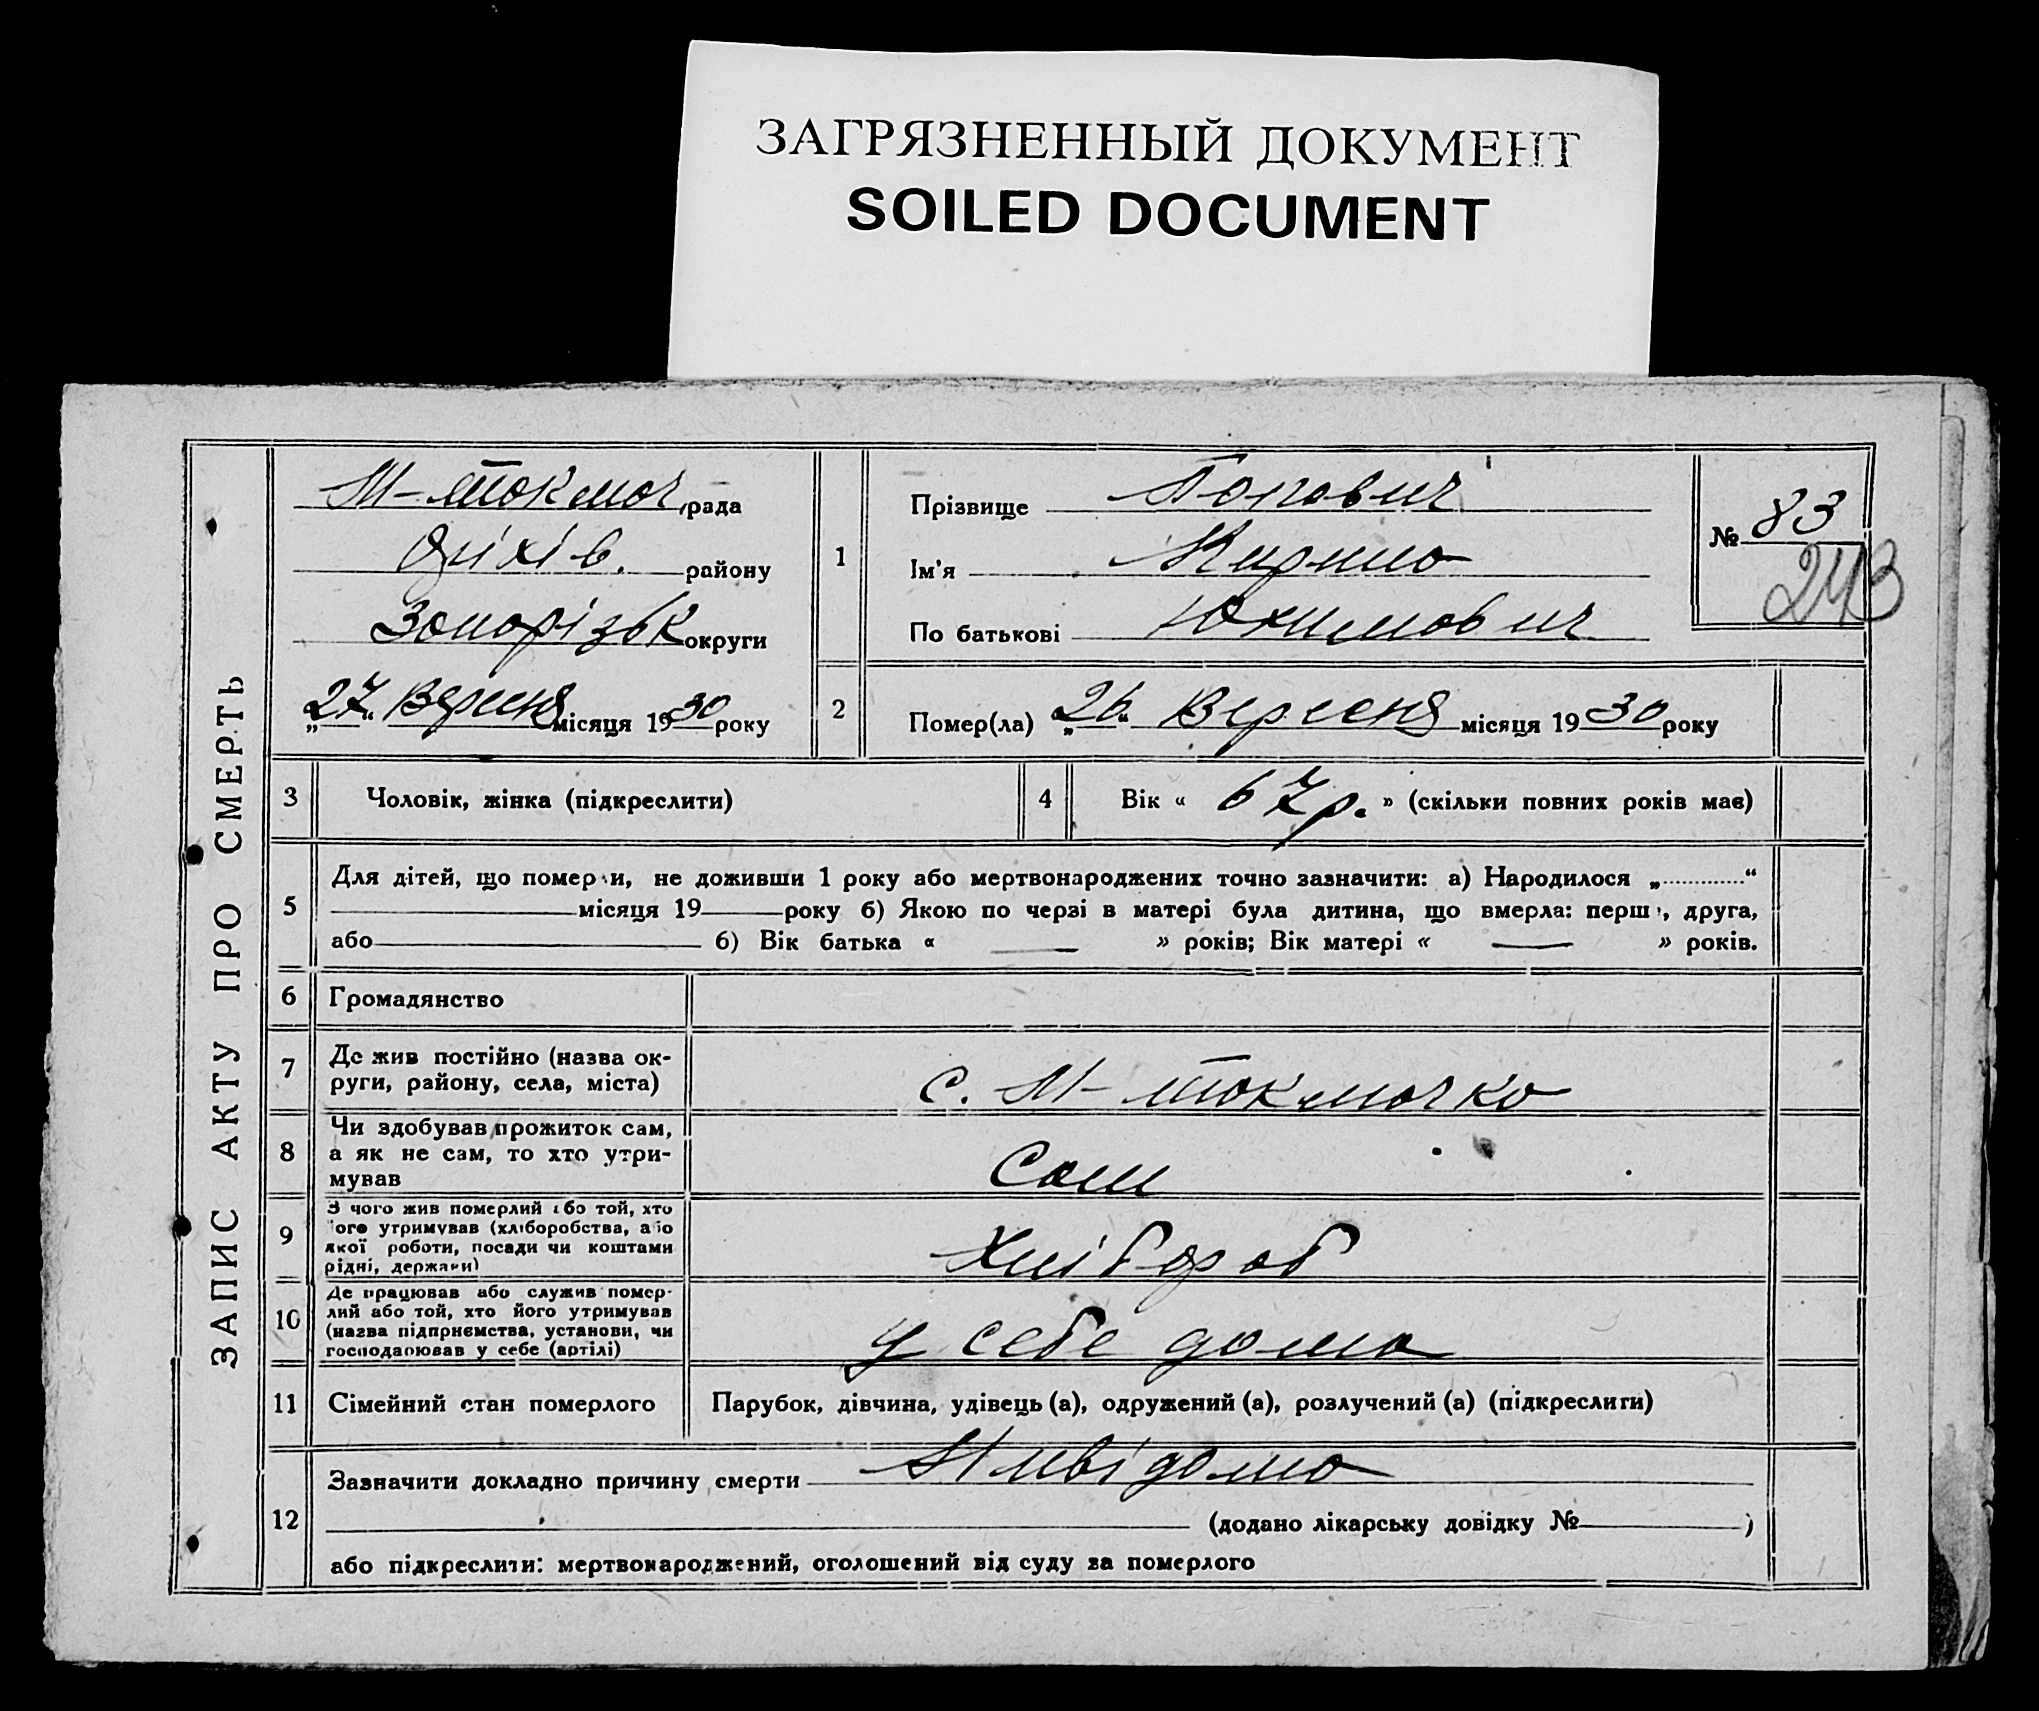 ЗАГРЯЗНЕННЫЙ ДОКУМЕНТ
SOILED DOCUMENT
ЗАПИС АКТУ ПРО СМЕРТЬ
М-Токмач, рада
Оріхів. району
Запорізьк округи
„27“ Вересня місяця 1930 року
1
Прізвище Попович
Ім'я Кирило
По батькові Юхимович
№ 83
243
2
Помер(ла) „26“ Вересня місяця 1930 року
3 Чоловік, жінка (підкреслити)
4 Вік « 67р. » (скільки повних років має)
5
Для дітей, що померли, не доживши 1 року або мертвонароджених точно зазначити: а) Народилося „............“
місяця 19 року б) Якою по черзі в матері була дитина, що вмерла: перша, друга,
або б) Вік батька « — » років; Вік матері « — » років.
6 Громадянство
7
Де жив постійно (назва ок-
руги, району, села, міста)
с. М-Токмачка
8
Чи здобував прожиток сам,
а як не сам, то хто утри-
мував
Сам
9
З чого жив померлий або той, хто
його утримував (хліборобства, або
якої роботи, посади чи коштами
рідні, держави)
Хлібороб
10
Де працював або служив помер-
лий або той, хто його утримував
(назва підприємства, установи, чи
господарював у себе (артілі)
у себе дома
11 Сімейний стан померлого
Парубок, дівчина, удівець (а), одружений (а), розлучений (а) (підкреслити)
12
Зазначити докладно причину смерти Нивідомо
(додано лікарську довідку № )
або підкреслити: мертвонароджений, оголошений від суду за померлого